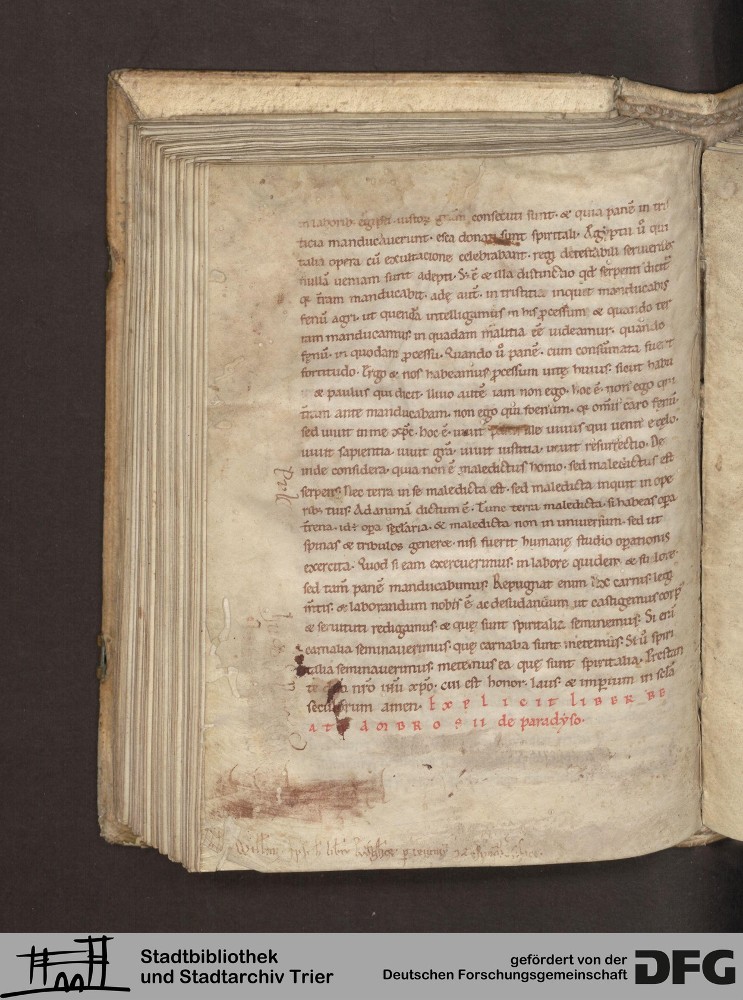 in laborib; egipti. iustoꝝ gr̄am consecuti sunt. & quia panē in tris
ticia manducauerunt. esca donati sunt spiritali. Ægyptii ů qui
talia opera cū exultacione celebrabant. regi detestabili seruientes
nullā ueniam sunt adepti. Ꞩ; ē & illa distinctio qd̄ serpenti dicit͛
q; t̄ram manducabit. adę aut̄. in tristitia inquit manducabis
fenū agri. ut quendā intelligamus in his p̱cessum. & quando ter
ram manducamus in quadam malitia eē uideamur. quando
fęnū. in quodam p̱cessu. Quando ů panē. cum consūmata fuerit
fortitudo. Ergo & nos habeamus p̱cessum uitę huius. sicut habu
& paulus qui dicit. Uiuo autē iam non ego. hoc ē. non ego qui
t̄ram ante manducabam. non ego qui foenum. q; omis̄ caro fęnū.
sed uiuit in me xp̄c. hoc ē. uiuit panis ille uiuus qui uenit e cęlo.
uiuit sapientia. uiuit gr̄a. uiuit iustitia. uiuit resurrectio. De
inde considera. quia non ē maledictus homo. sed maledictus est
serpens. Nec terra in se maledicta est. sed maledicta inquit in ope
rib; tuis. Ad animā dictum ē. Tunc terra maledicta. si habeas opa
t̄rena. id: opa sęclaria. & maledicta non in uniuersum. sed ut
spinas & tribulos generet. nisi fuerit humanę studio operationis
exercita. Quod si eam exercuerimus. in labore quidem & su lore
sed tam̄ panē manducabimus. Repugnat enim hęc carnis. legi
m̄tis. & laborandum nobis ē ac desudandum. ut castigemus corp᷒
& seruituti redigamus. & quę sunt spiritalia seminemus. Si eni
carnalia seminauerimus. quę carnalia sunt metemus. Si ů spiri
talia seminauerimus. metemus ea quę sunt spiritalia. Prestan
te nr̄o ih̄u xp̄o. cui est honor. laus. & imperium in sc̄la
seculorum amen. EXPLICIT LIBER BE
ATI AMBROSII de paradyso.
Stadtbibliothek
und Stadtarchiv Trier
gefördert von der
Deutschen Forschungsgemeinschaft
DFG